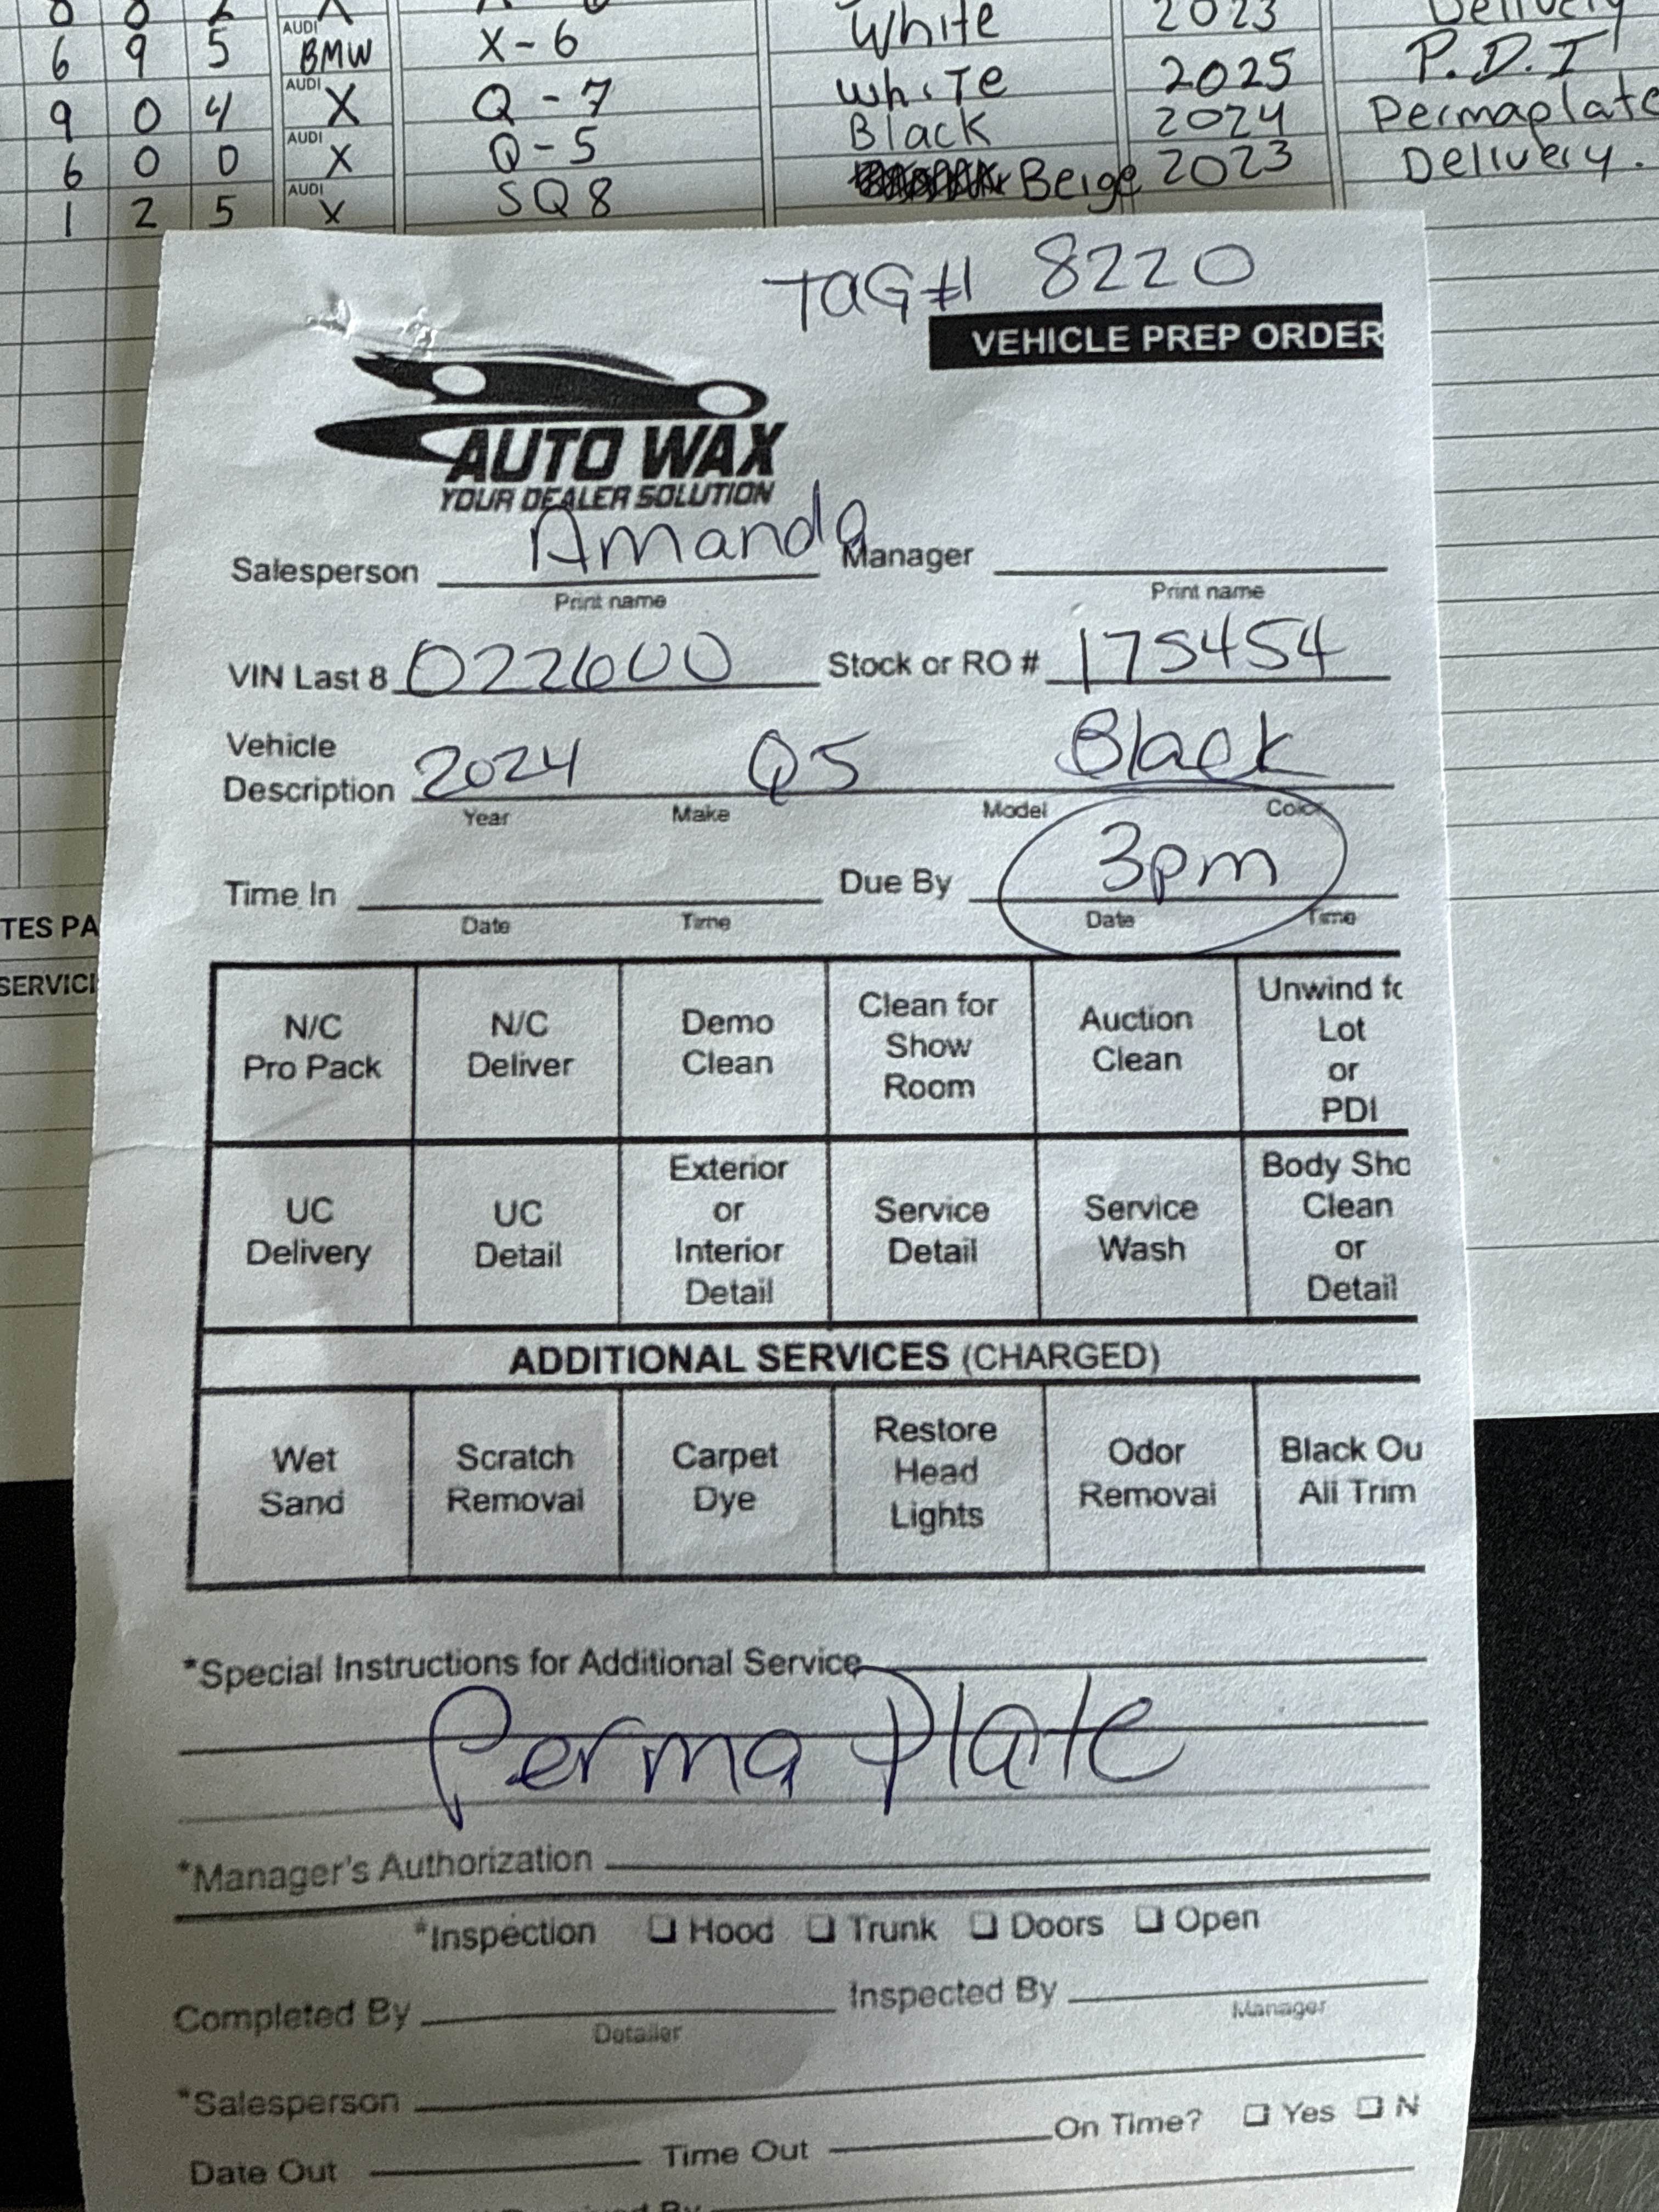 AUDI
6 9 5 BMW X-6 White 2023 Delivery
AUDI
9 0 4 X Q-7 WhiTe 2025 P.D.I
AUDI
6 0 0 X Q-5 Black 2024 Permaplate
AUDI
1 2 5 X SQ8 Beige 2023 Delivery.
TAG# 8220
VEHICLE PREP ORDER
AUTO WAX
YOUR DEALER SOLUTION
Salesperson Amanda Manager
Print name Print name
VIN Last 8 022600 Stock or RO # 175454
Vehicle
Description 2024 Q5 Black
Year Make Model Color
Time In Due By 3pm
Date Time Date Time
TES PA
SERVICI
N/C
Pro Pack
N/C
Deliver
Demo
Clean
Clean for
Show
Room
Auction
Clean
Unwind fo
Lot
or
PDI
UC
Delivery
UC
Detail
Exterior
or
Interior
Detail
Service
Detail
Service
Wash
Body Sho
Clean
or
Detail
ADDITIONAL SERVICES (CHARGED)
Wet
Sand
Scratch
Removal
Carpet
Dye
Restore
Head
Lights
Odor
Removal
Black Ou
All Trim
*Special Instructions for Additional Service
Perma Plate
*Manager's Authorization
*Inspection ❑ Hood ❑ Trunk ❑ Doors ❑ Open
Completed By Inspected By
Detailer Manager
*Salesperson
On Time? ❑ Yes ❑ N
Date Out Time Out